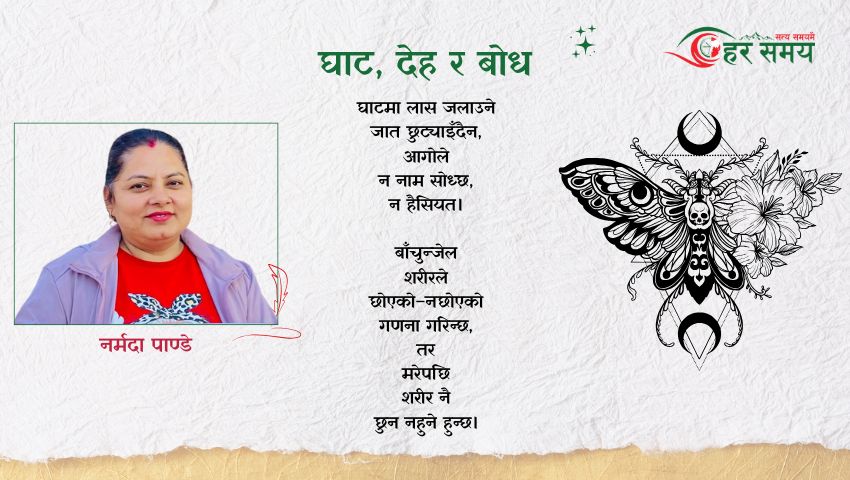 सत्य समयमै
हर समय
घाट, देह र बोध
घाटमा लास जलाउने
जात छुट्याइँदैन,
आगोले
न नाम सोध्छ,
न हैसियत।
बाँचुन्जेल
शरीरले
छोएको-नछोएको
गणना गरिन्छ,
तर
मरेपछि
शरीर नै
छुन नहुने हुन्छ।
नर्मदा पाण्डे